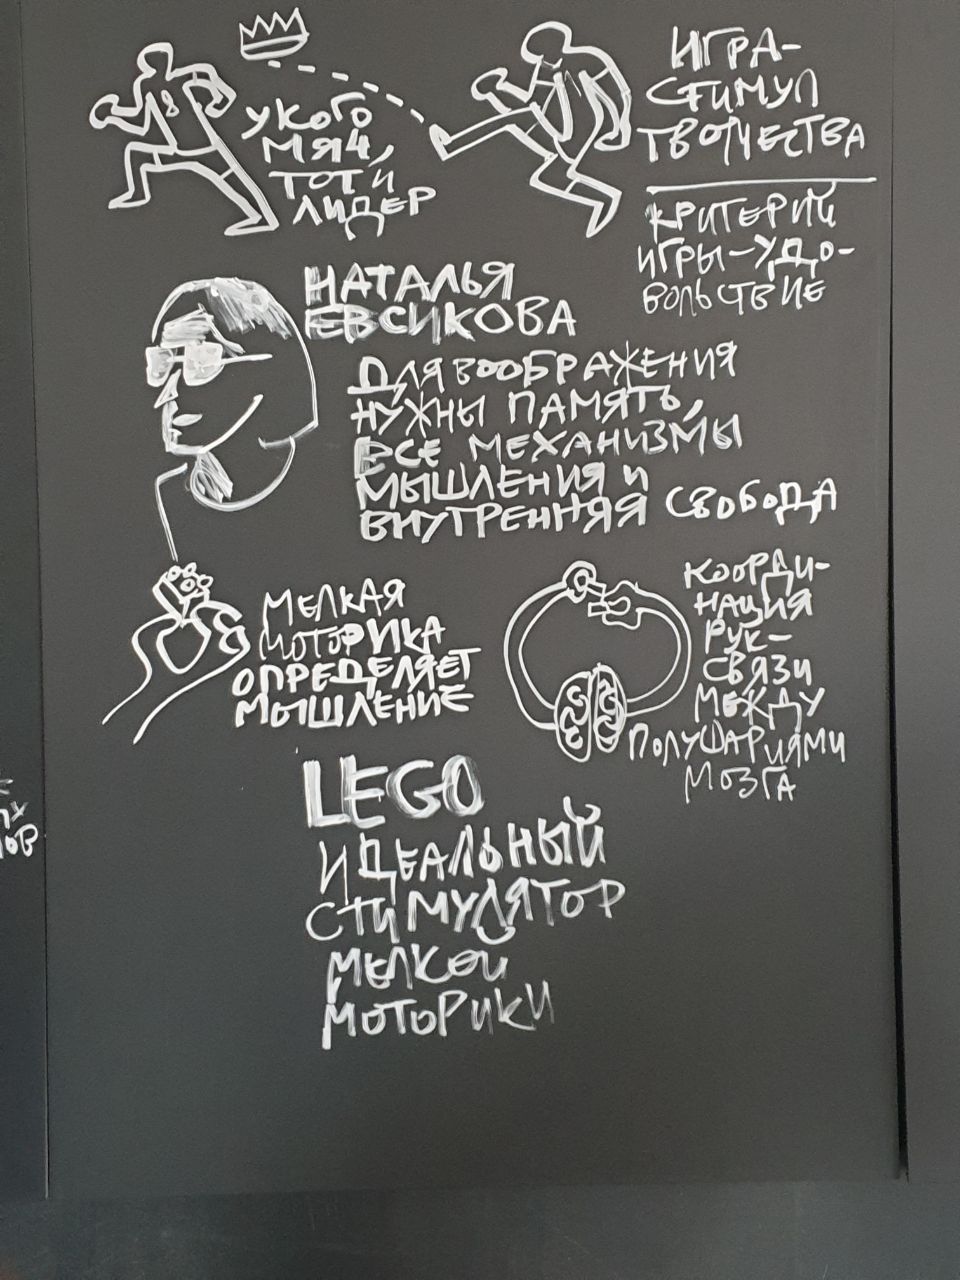 У КОГО
МЯЧ,
ТОТ И
ЛИДЕР
ИГРА-
СТИМУЛ
ТВОРЧЕСТВА
КРИТЕРИЙ
ИГРЫ-УДО-
ВОЛЬСТВИЕ
НАТАЛЬЯ
ЕВСИКОВА
ДЛЯ ВООБРАЖЕНИЯ
НУЖНЫ ПАМЯТЬ,
ВСЕ МЕХАНИЗМЫ
МЫШЛЕНИЯ И
ВНУТРЕННЯЯ СВОБОДА
МЕЛКАЯ
МОТОРИКА
ОПРЕДЕЛЯЕТ
МЫШЛЕНИЕ
КООРДИ-
НАЦИЯ
РУК-
СВЯЗИ
МЕЖДУ
ПОЛУШАРИЯМИ
МОЗГА
LEGO
ИДЕАЛЬНЫЙ
СТИМУЛЯТОР
МЕЛКОЙ
МОТОРИКИ